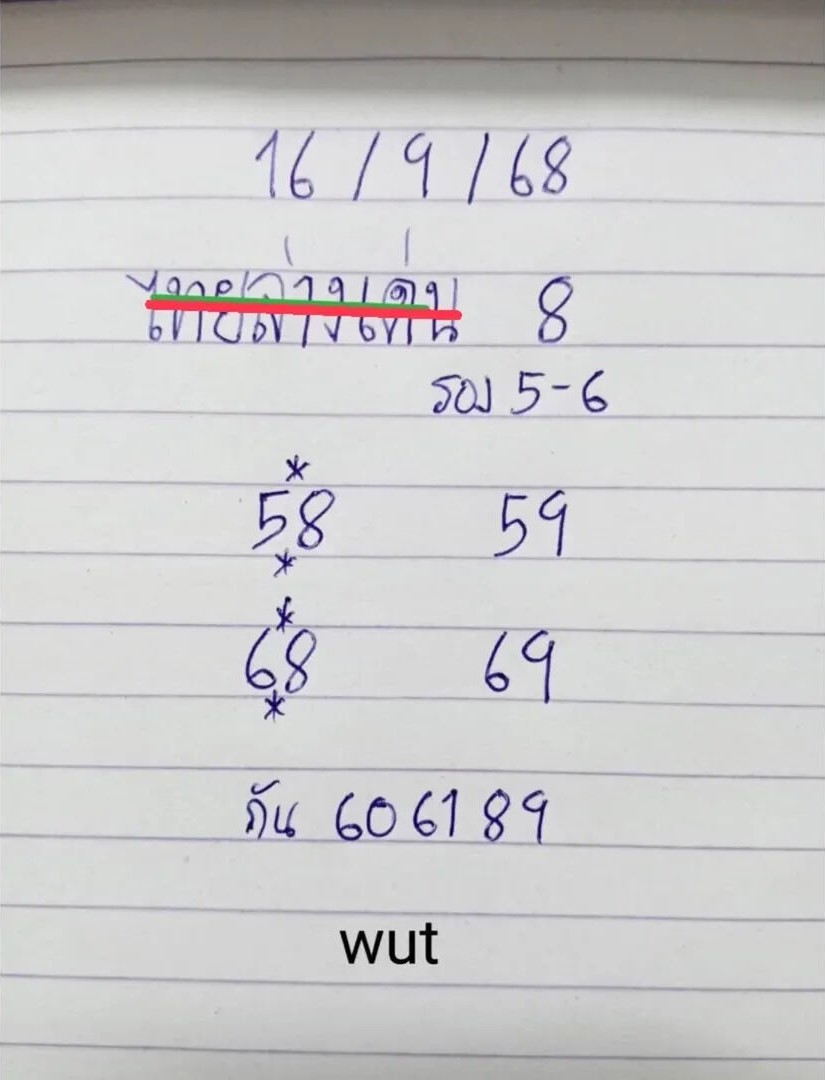 16/9/68
ไทยล่างเด่น 8
รอง 5-6
*
58 59
*
*
68 69
*
กัน 60 61 89
wut